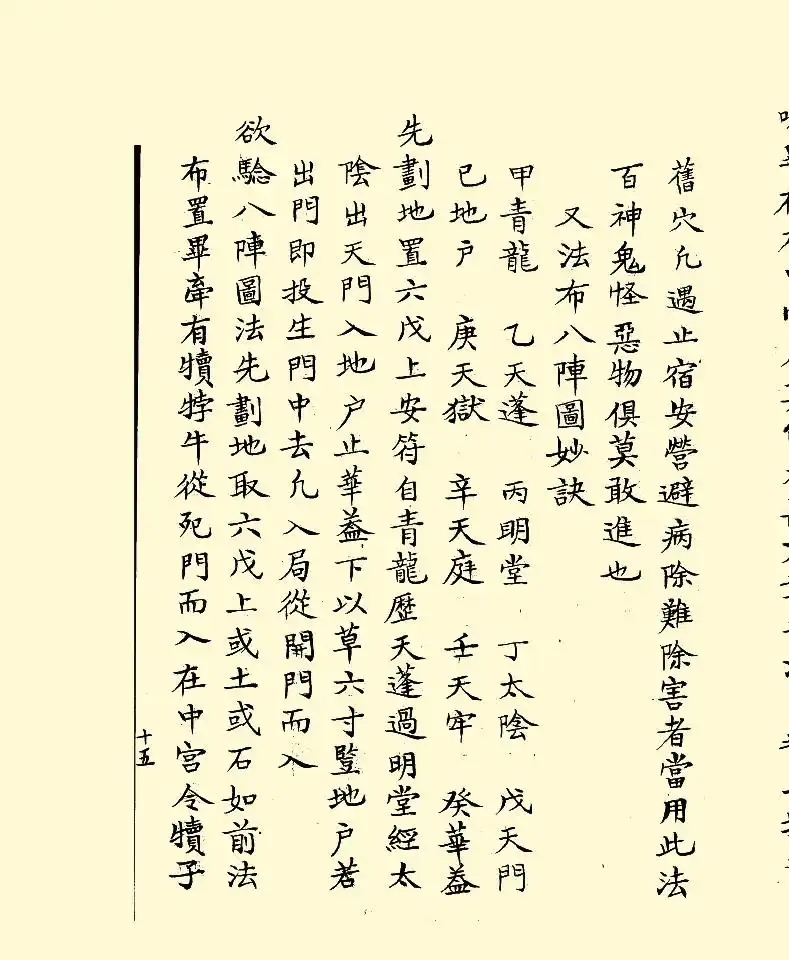 舊穴凡遇止宿安營避病除難除害者當用此法
百神鬼怪惡物俱莫敢進也
又法布八陣圖妙訣
甲青龍 乙天蓬 丙明堂 丁太陰 戊天門
已地户 庚天獄 辛天庭 壬天牢 癸華葢
先劃地置六戊上安符自青龍歷天蓬過明堂經太
陰出天門入地户止華葢下以草六寸䜿地户若
出門即投生門中去凡入局從開門而入
欲驗八陣圖法先劃地取六戊上或土或石如前法
布置畢牽有犢牸牛從死門而入在中宮令犢子
十五